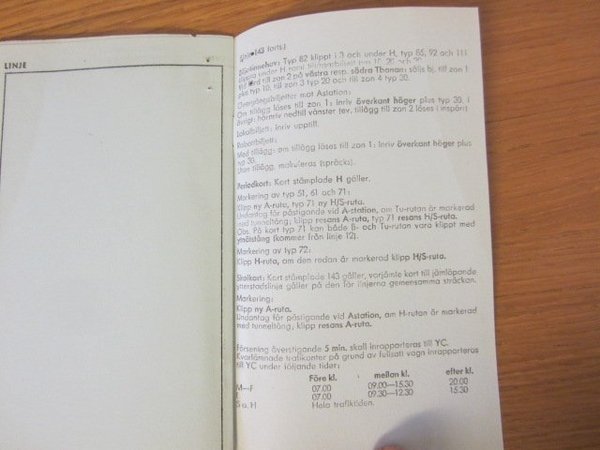 LINJE
143 forts.)
Typ 82 klippt i 3 och under H, typ 85, 92 och 111
till zon 2 på västra resp. södra Thanan: säljs bj. till zon 1
plus typ 10, till zon 3 typ 20 och till zon 4 typ 30.
Övergångsbiljetter mot Astation:
Om tillägg löses till zon 1: inriv överkant höger plus typ 30. I
övrigt: hörnriv nedtill vänster (ev. tillägg till zon 2 löses i inspärr)
Lokalbiljett: inriv upptill.
Rabattbiljett:
Med tillägg: om tillägg löses till zon 1: inriv överkant höger plus
typ 30.
Utan tillägg, makuleras (spräcks).
Periodkort: Kort stämplade H gäller.
Markering av typ 51, 61 och 71:
Klipp ny A-ruta, typ 71 ny H/S-ruta.
Undantag för påstigande vid A-station, om Tu-rutan är markerad
med tunneltång; klipp resans A-ruta, typ 71 resans H/S-ruta.
Obs. På kort typ 71 kan både B- och Tu-rutan vara klippt med
ynöistång (kommer från linje 12).
Markering av typ 72:
Klipp H-ruta, om den redan är markerad klipp H/S-ruta.
Skolkort: Kort stämplade 143 gäller, varjämte kort till jämlöpande
ytterstadslinje gäller på den för linjerna gemensamma sträckan.
Markering:
Klipp ny A-ruta.
Undantag för påstigande vid Astation, om H-rutan är markerad
med tunneltång; klipp resans A-ruta.
Försening överstigande 5 min. skall inrapporteras till YC.
Kvarlämnade trafikanter på grund av fullsatt vagn inrapporteras
till YC under följande tider:
Före kl. mellan kl. efter kl.
M—F 07.00 09.00—15.30 20.00
L 07.00 09.30—12.30 15.30
S o. H Hela trafiktiden.